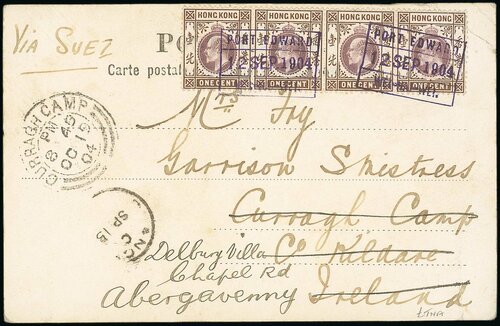 Via Suez
HONG KONG HONG KONG HONG KONG HONG KONG
ONE CENT ONE CENT ONE CENT ONE CENT
PORT EDWARD
12 SEP 1904
PORT EDWARD
12 SEP 1904
Carte postal
CURRAGH CAMP
8 45 PM
OC 19
04
Mrs Foy
Garrison Smistress
Curragh Camp
Co Kildare
Ireland
Delbury Villa
Chapel Rd
Abergavenny